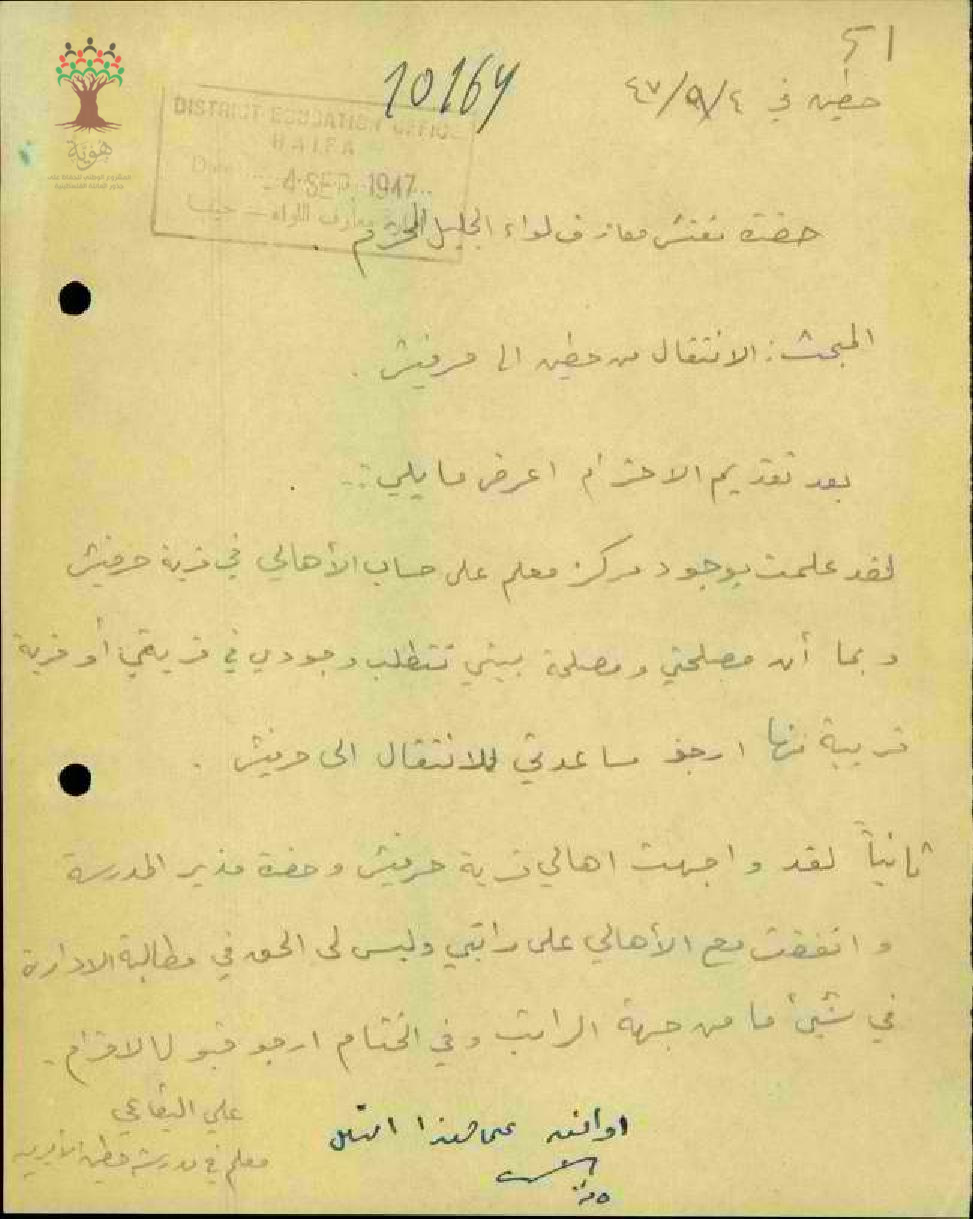 51
حطين في ٤/٩/٤٧
10164
DISTRICT EDUCATION OFFICE
HAIFA
Date 4 SEP 1947
معارف اللواء — حيفا
هوية
حضرة مفتش معارف لواء الجليل المحترم .
المبحث : الانتقال من حطين الى حرفيش .
بعد تقديم الاحترام اعرض ما يلي :-
لقد علمت بوجود مركز معلم على حساب الأهالي في قرية حرفيش
و بما أن مصلحتي و مصلحة بيتي تتطلب وجودي في قريتي أو قرية
قريبة منها ارجو مساعدتي للانتقال الى حرفيش .
ثانياً لقد واجهت اهالي قرية حرفيش و حضرة مدير المدرسة
و اتفقت مع الأهالي على راتبي وليس لي الحق في مطالبة الادارة
في شيئ ما من جهة الراتب و في الختام ارجو قبول الاحترام .
علي البقاعي
معلم في مدرسة حطين الأميرية
اوافق على هذا النقل